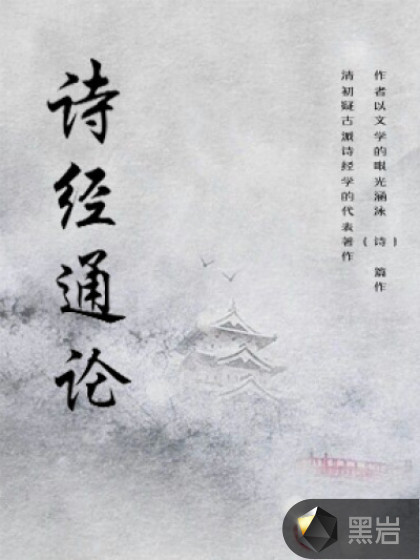 诗经通论
作者以文学的眼光涵泳《诗》篇作
清初疑古派诗经学的代表著作
黑岩